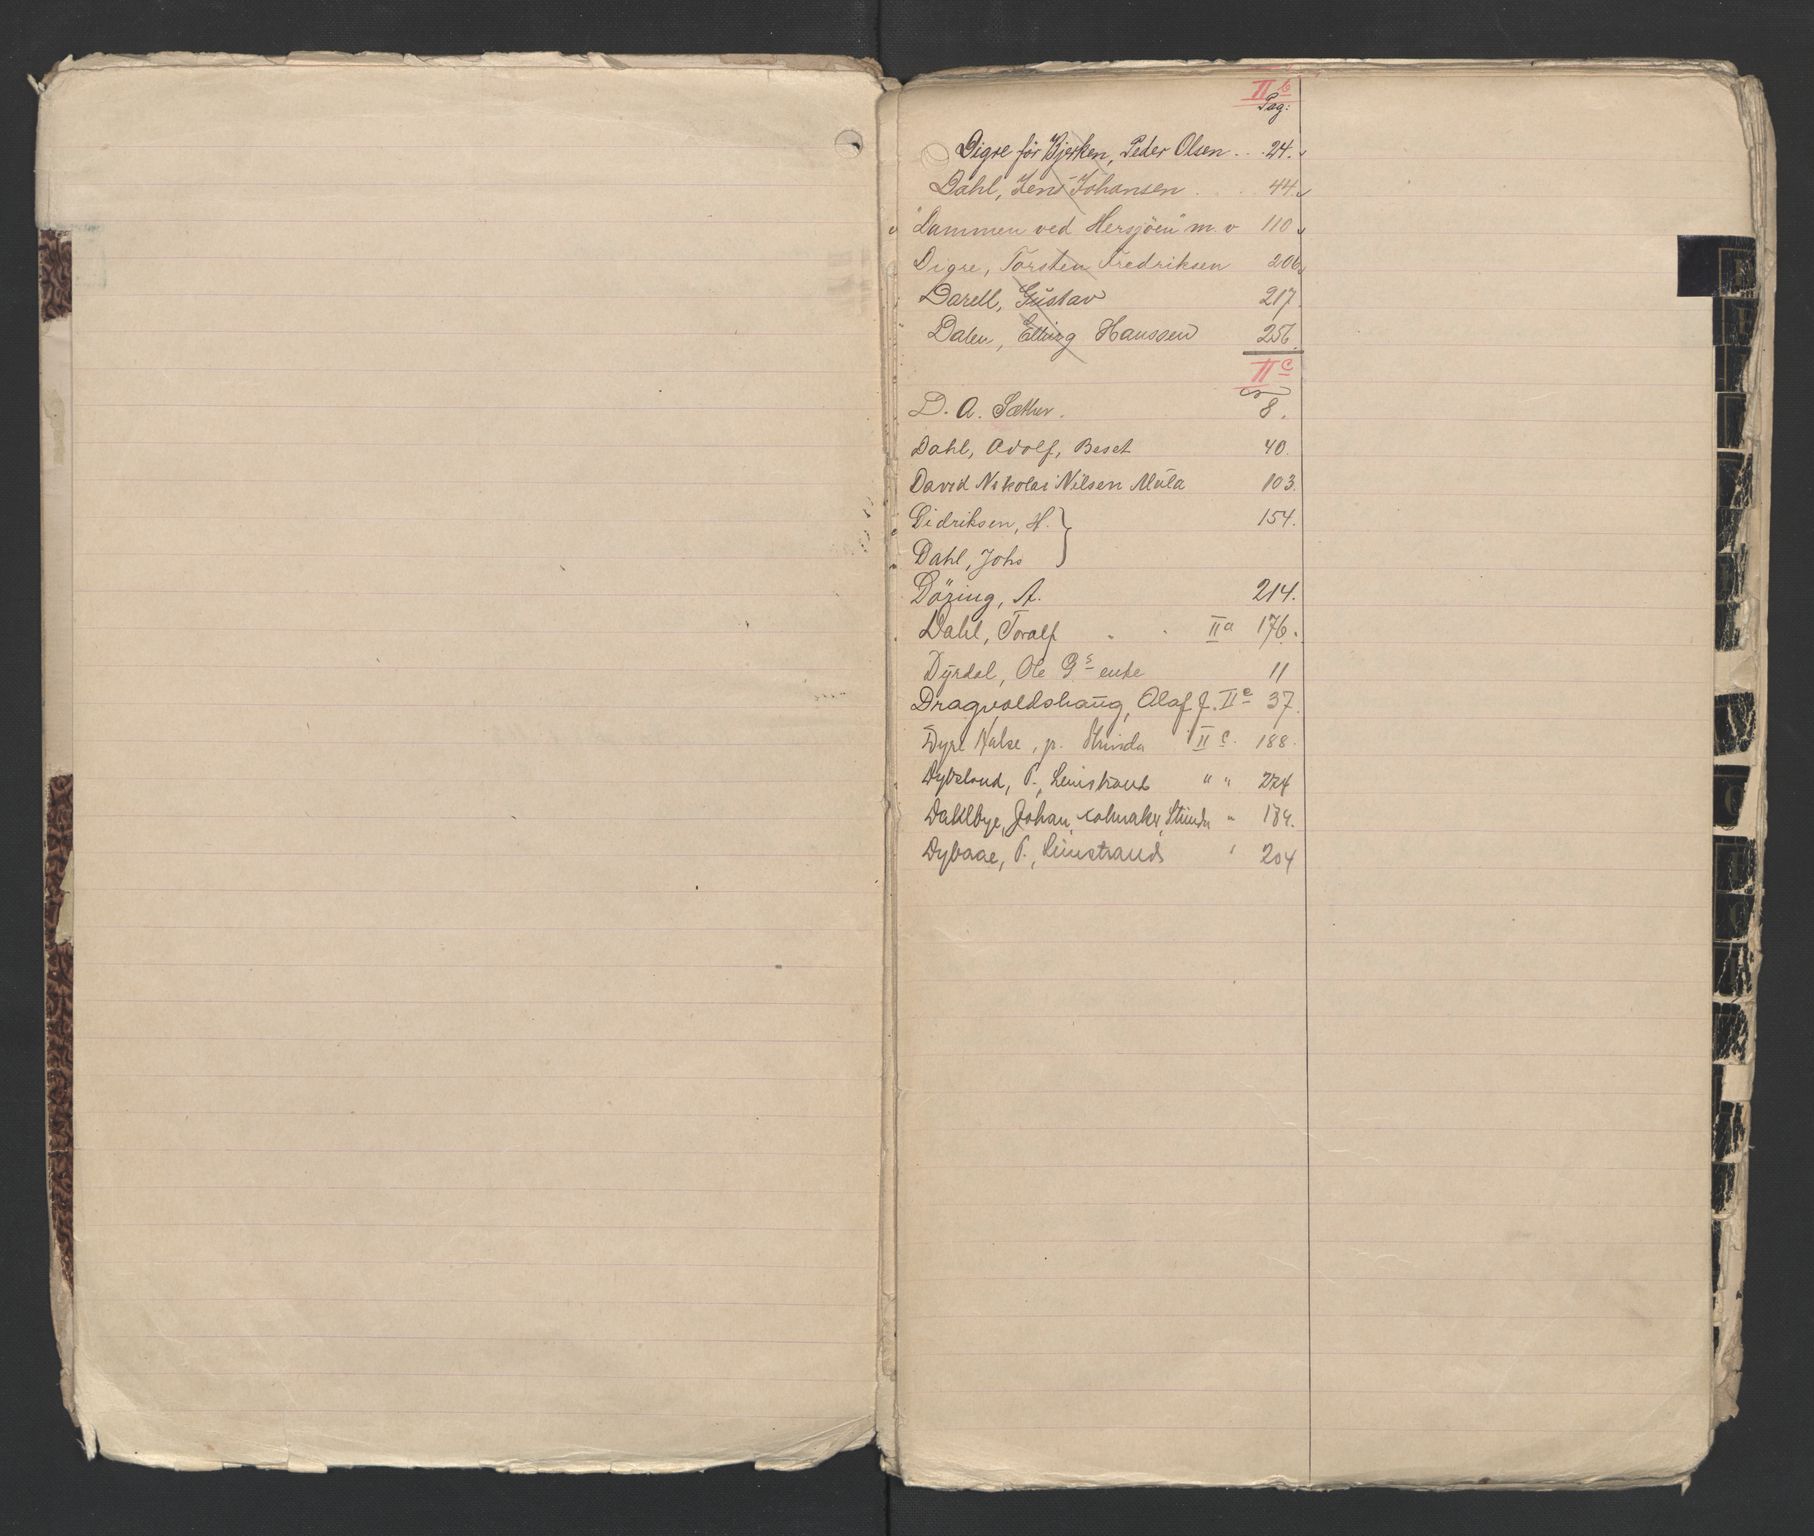 II b
Pag:
Digre för Bjerken, Peder Olsen . . 24.
Dahl, Jens Johansen . . . 44
"Dammen ved Hersjöen" m. v 110
Digre, Torsten Fredriksen 206
Darell, Gustav 217.
Dalen, Elling Hanssen 256.
II c
D. A. Sæther. 8.
Dahl, Adolf, Beset 40.
David Nikolai Nilsen Mŭla 103.
Didriksen, H. } 154.
Dahl, Johs
Döring, A. 214.
Dahl, Toralf " . II a 176.
Dyrdal, Ole G s enke 11
Dragvoldshaŭg, Olaf J. II e 37.
Dyre Halse, p. Strinda II c. 188.
Dybsland, P., Leinstrand " " 224
Dahlbye, Johan, Strinda " 184.
Dybaae, P., Leinstrands " 204